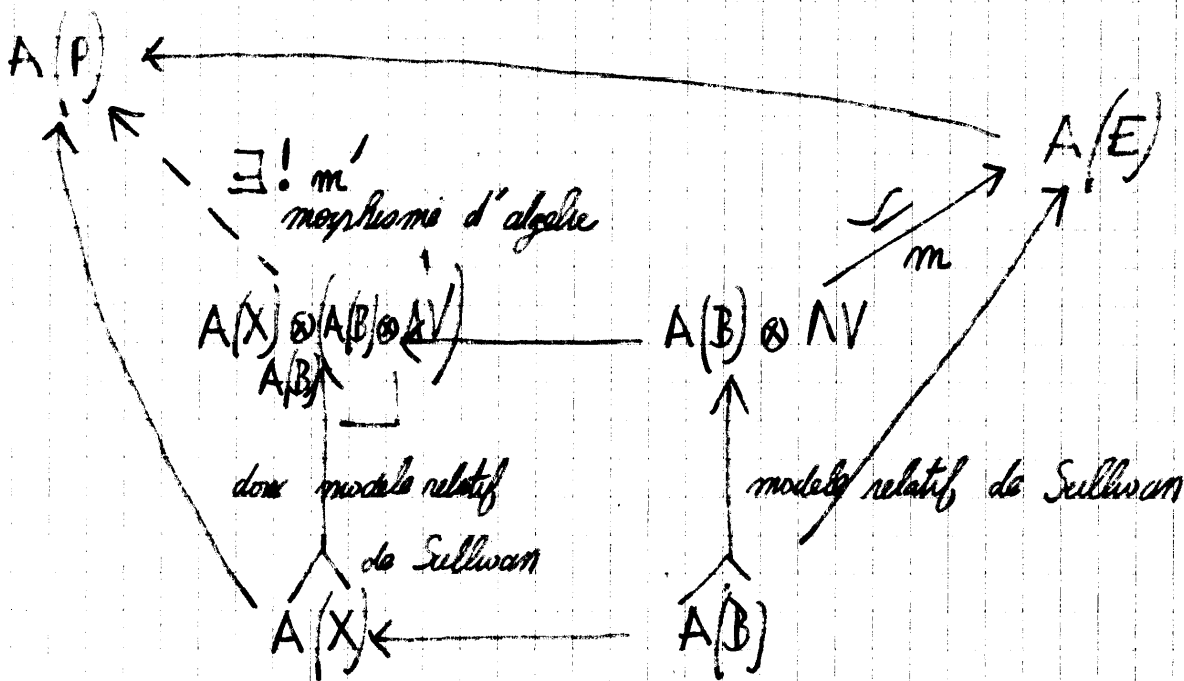 A(P)
A(E)
∃! m'
morphisme d'algèbre
≃
m
A(X) ⊗ (A(B) ⊗ ΛV)
A(B)
A(B) ⊗ ΛV
donc modele relatif
de Sullivan
modele relatif de Sullivan
A(X)
A(B)